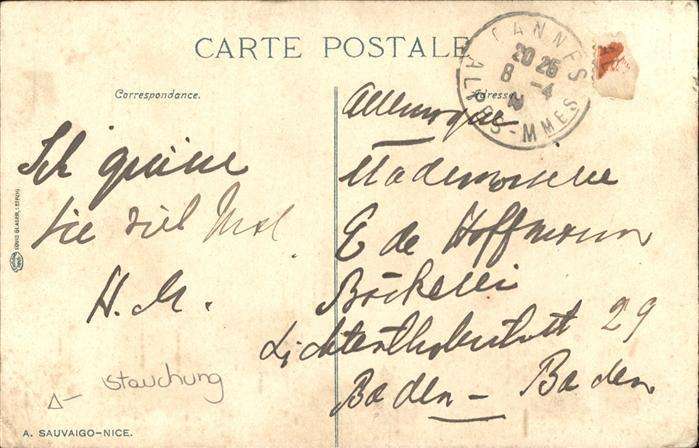 CARTE POSTALE
CANNES
20 25
8 -4
ALPES-MMES
Correspondance.
Adresse
Allemagne
Ich grüsse
Sie viel Mal
H. M.
Mademoiselle
E de Hoffmann
Bäckerei
Lichtenthalerstrasse 29
Baden - Baden
Stauchung
A. SAUVAIGO-NICE.